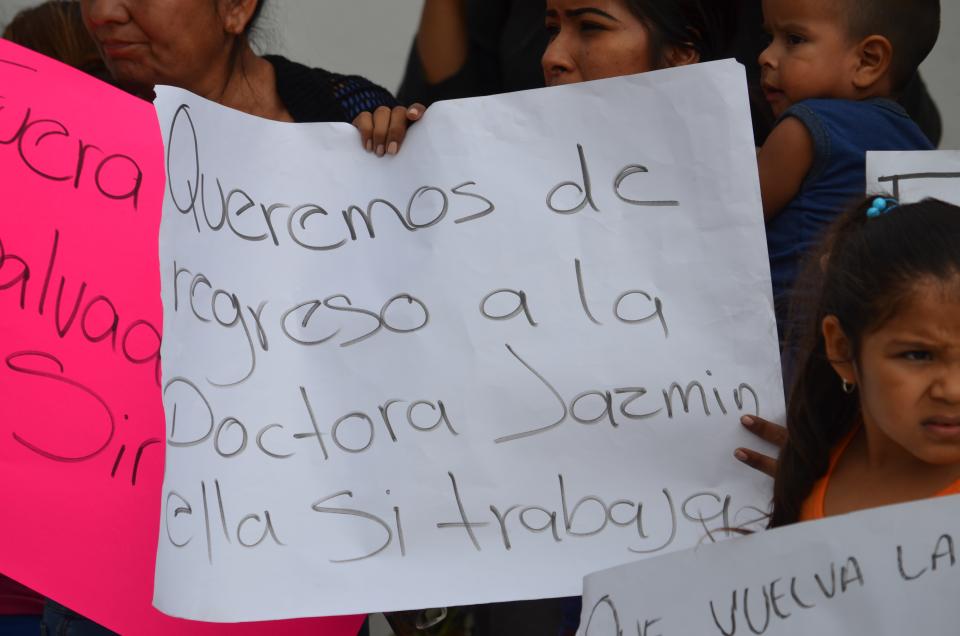 Fuera
Salvad
Sir
Queremos de
regreso a la
Doctora Jazmin
ella si trabaja
QUE VUELVA LA